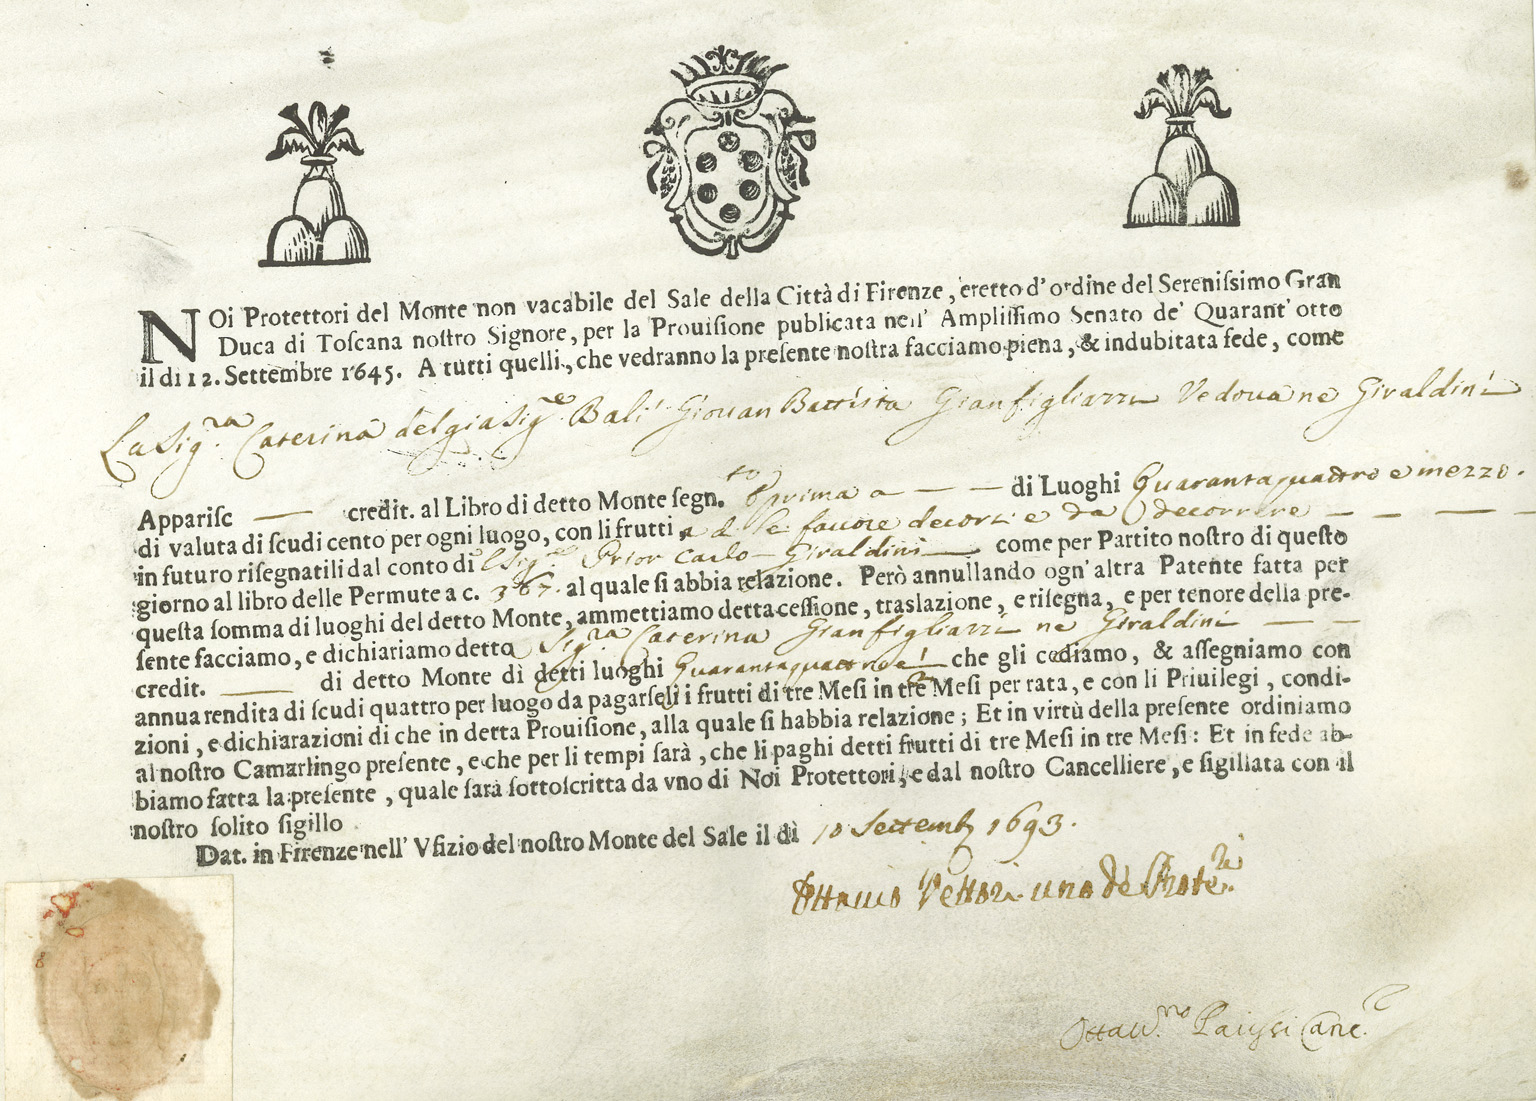 NOi Protettori del Monte non vacabile del Sale della Città di Firenze, eretto d'ordine del Sereniſſimo Gran
Duca di Toſcana noſtro Signore, per la Prouiſione publicata nell' Ampliſſimo Senato de' Quarant' otto
il di 12. Settembre 1645. A tutti quelli, che vedranno la preſente noſtra facciamo piena, & indubitata fede, come
La Sig.ra Caterina del gia Sig.re Bali Giouan Battista Gianfigliazzi Vedoua ne Giraldini
Appariſc — credit. al Libro di detto Monte ſegn.to prima a — — di Luoghi Quarantaquattro e mezzo.
di valuta di ſcudi cento per ogni luogo, con li frutti a fauore decorsi e da decorrere — — —
in futuro riſegnatili dal conto di Sig.re Prior Carlo Giraldini — come per Partito noſtro di queſto
giorno al libro delle Permute a c. 367. al quale ſi abbia relazione. Però annullando ogn' altra Patente fatta per
queſta ſomma di luoghi del detto Monte, ammettiamo detta ceſſione, traslazione, e riſegna, e per tenore della pre-
ſente facciamo, e dichiariamo detta Sig.ra Caterina Gianfigliazzi ne Giraldini — —
credit. — di detto Monte di detti luoghi Quarantaquattro e 1/2 che gli cediamo, & aſſegniamo con
annua rendita di ſcudi quattro per luogo da pagarſeli i frutti di tre Meſi in tre Meſi per rata, e con li Priuilegi, condi-
zioni, e dichiarazioni di che in detta Prouiſione, alla quale ſi habbia relazione; Et in virtù della preſente ordiniamo
al noſtro Camarlingo preſente, e che per li tempi ſarà, che li paghi detti frutti di tre Meſi in tre Meſi: Et in fede ab-
biamo fatta la preſente, quale ſarà ſottoſcritta da vno di Noi Protettori, e dal noſtro Cancelliere, e ſigillata con il
noſtro ſolito ſigillo
Dat. in Firenze nell' Vfizio del noſtro Monte del Sale il dì 10 Settemb 1693.
Ottauio Vettori uno de Prote.ri
Ottau.no Canc.